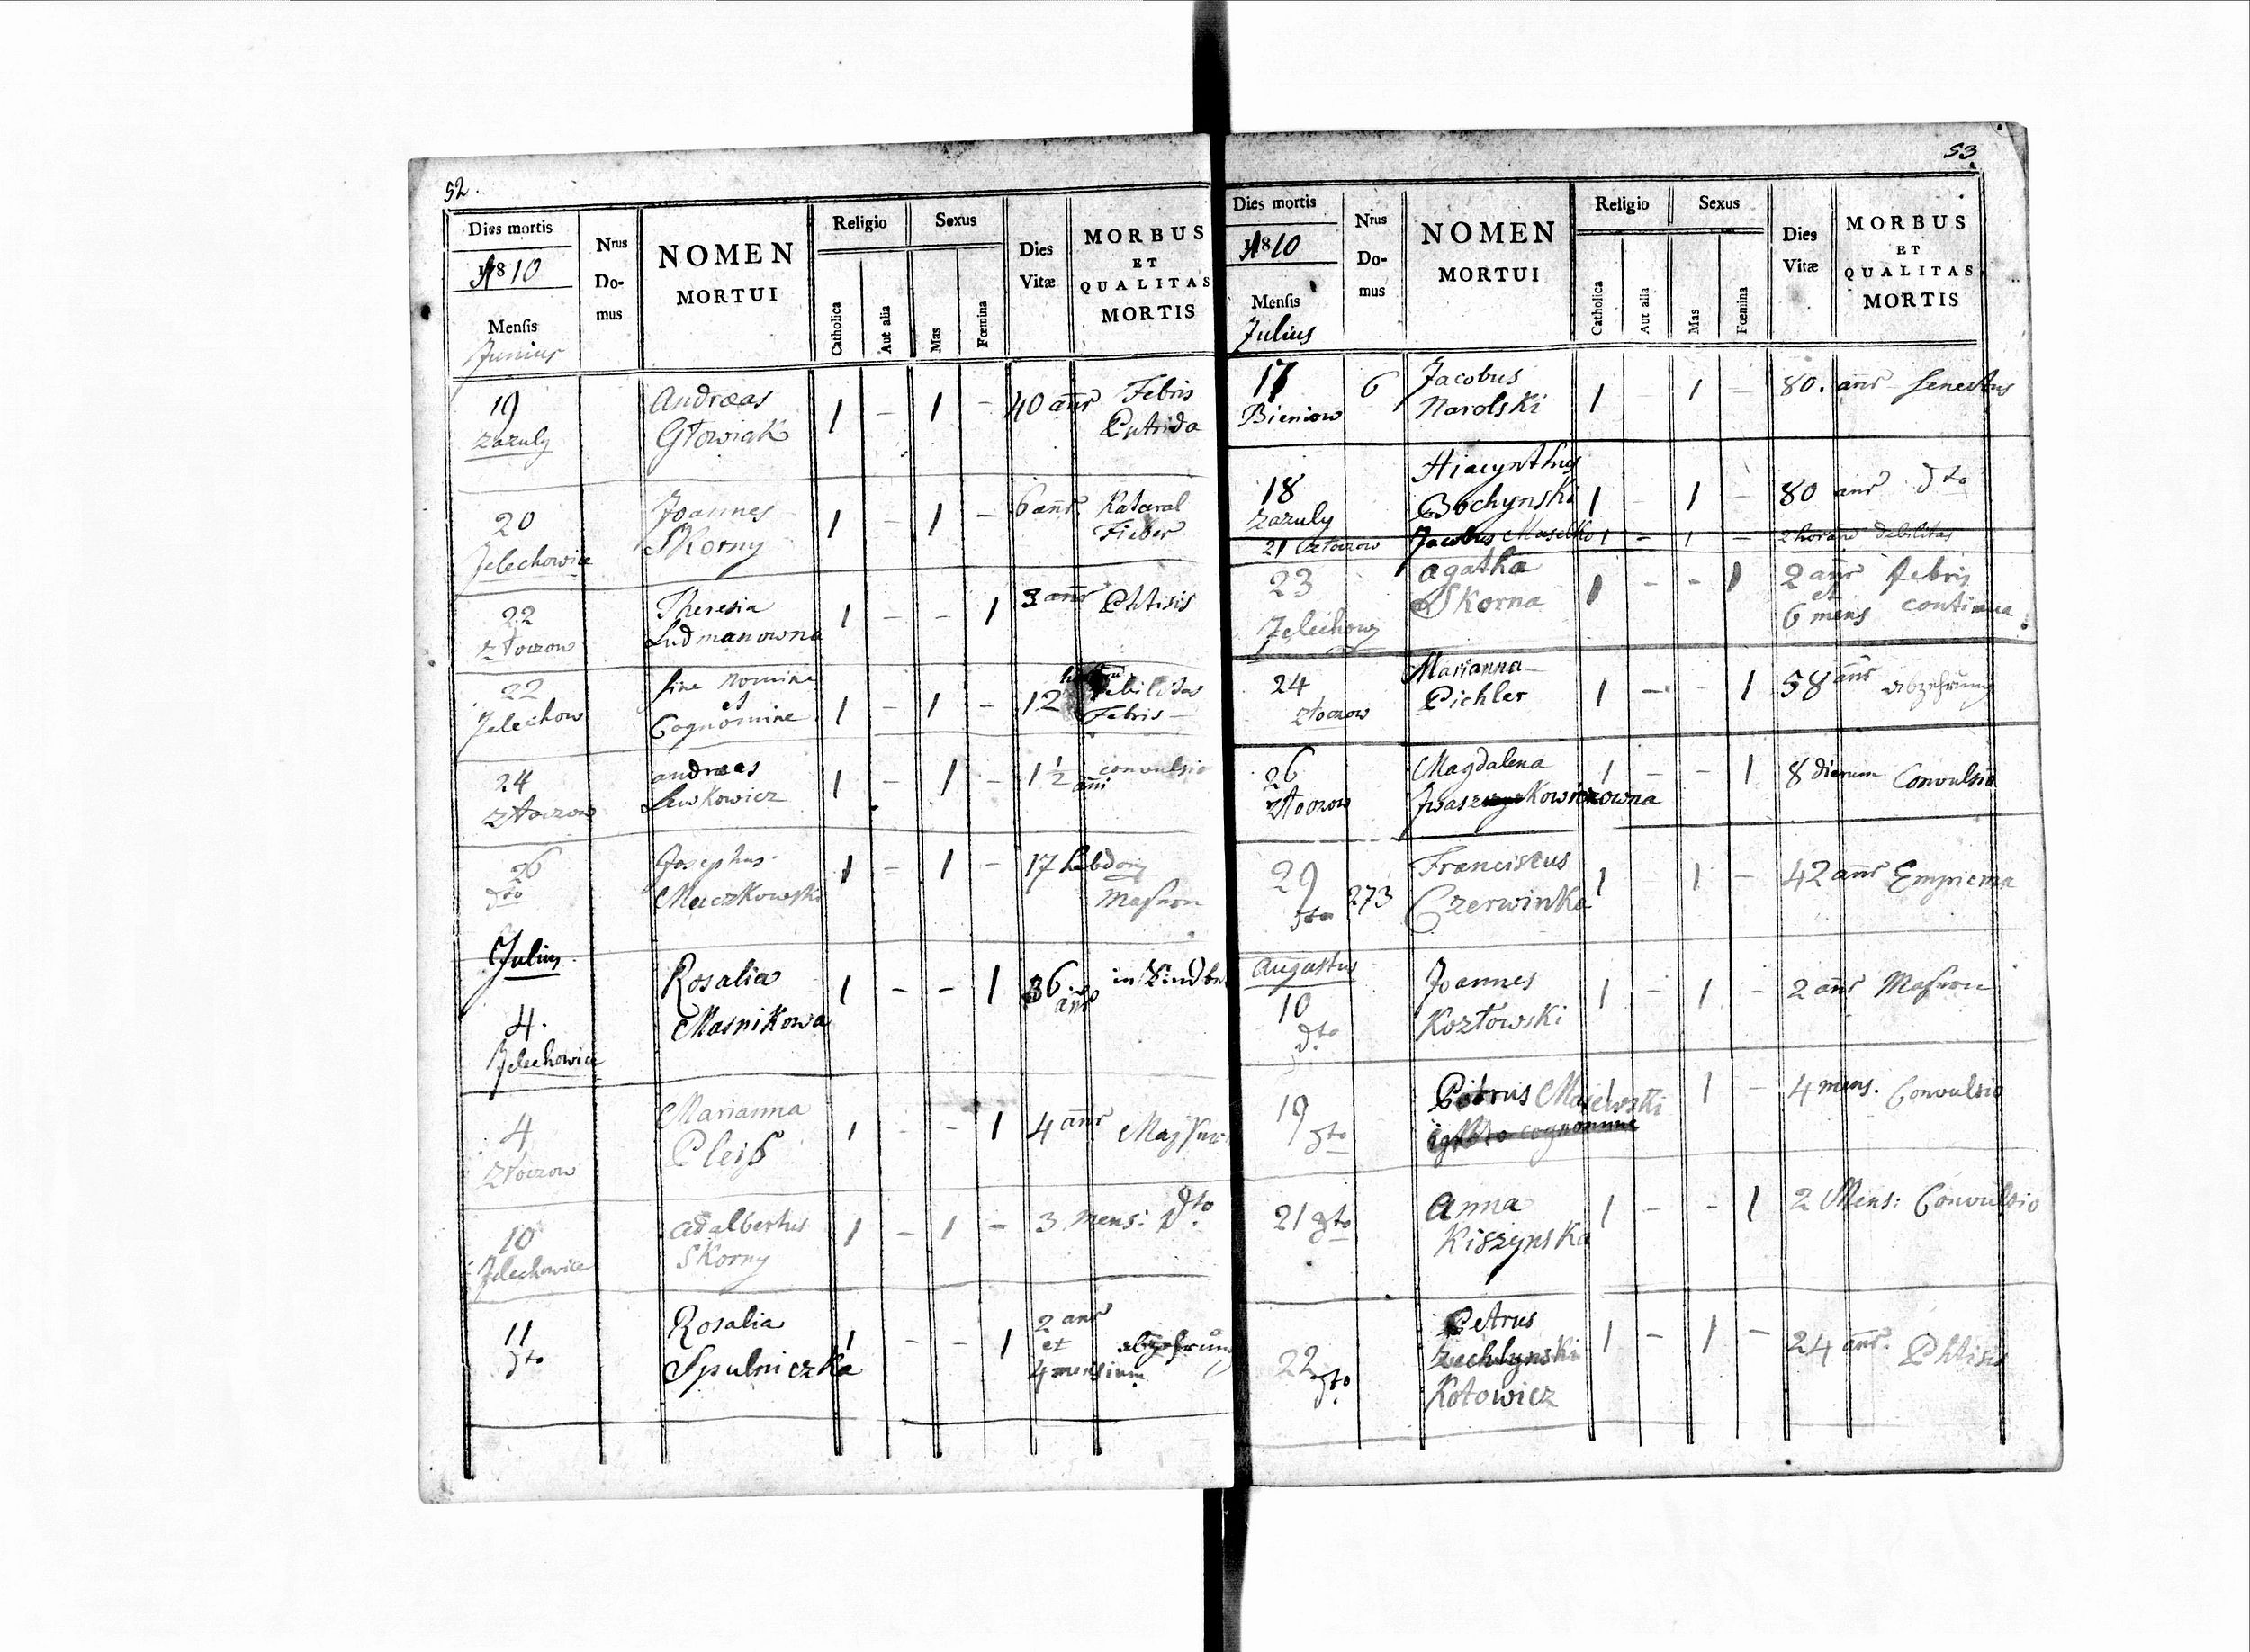 52.
Dies mortis
1810
Mensis
Junius
Nrus
Do-
mus
NOMEN
MORTUI
Religio
Catholica
Aut alia
Sexus
Mas
Fœmina
Dies
Vitæ
MORBUS
ET
QUALITAS
MORTIS
19
Zazuly
Andræas
Głowiak
1 - 1 -
40 anñr
Febris
Putrida
20
Jelechowice
Joannes
Skorny
1 - 1 -
6 anñr
Kataral
Fieber
22
Złoczow
Theresia
Ludmanowna
1 - - 1
3 anñr
Phtisis
22
Jelechow
sine nomine
et
Cognomine
1 - 1 -
12
Debilitas
Febris
24
Złoczow
andræas
Lewkowicz
1 - 1 -
1 1/2
añi
convulsio
26
dto
Josephus
Maczkowski
1 - 1 -
17 hebdom
Masern
Julius
4.
Jelechowice
Rosalia
Masnikowa
1 - - 1
36
anño
in Kindbe
4
Złoczow
Marianna
Pleiß
1 - - 1
4 anñr
10
Jelechowice
adalbertus
Skorny
1 - 1 -
3 mens: dto
11
dto
Rosalia
Spulniczka
1 - - 1
2 anñr
et
4 mensium
abzehrung
53
Dies mortis
1810
Mensis
Julius
Nrus
Do-
mus
NOMEN
MORTUI
Religio
Catholica
Aut alia
Sexus
Mas
Fœmina
Dies
Vitæ
MORBUS
ET
QUALITAS
MORTIS
17
Bieniow
6
Jacobus
Narolski
1 - 1 -
80. anñr senectus
18
Zazuly
Hiacynthus
Bochynski
1 - 1 -
80 anñr dto
21 Złoczow Jacobus Maselko 1 - 1 - 2 horarum debilitas
23
Jelechow
agatha
Skorna
1 - - 1
2 anñr
et
6 mens
febris
continua
24
Złoczow
Marianna
Pichler
1 - - 1
58 anñr abzehrung
26
Złoczow
Magdalena
1 - - 1
8 dierum Convulsio
29
dto
273
Franciscus
Czerwinka
1 - 1 -
42 anñr Empiema
Augustus
10
dto
Joannes
Kozłowski
1 - 1 -
2 anñr Masern
19 dto
Petrus Majewski
cognomine
1 -
4 mens. Convulsio
21 dto
Anna
Kiszynska
1 - - 1
2 Mens: Convulsio
22 dto
Petrus
Zechlynski
Kotowicz
1 - 1 -
24 anñr. Phtisis